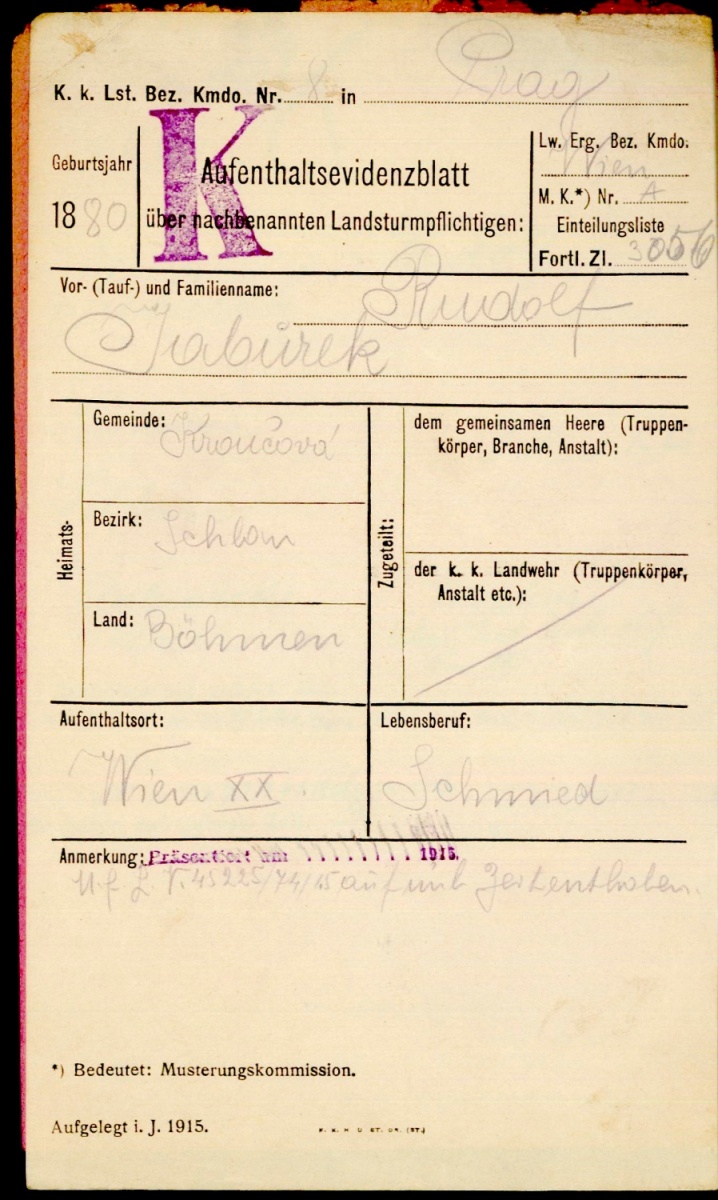 K. k. Lst. Bez. Kmdo. Nr. 8 in Prag
K
Geburtsjahr
1880
Aufenthaltsevidenzblatt
über nachbenannten Landsturmpflichtigen:
Lw. Erg. Bez. Kmdo.
Wien
M. K.*) Nr. A
Einteilungsliste
Fortl. Zl. 3056
Vor- (Tauf-) und Familienname: Rudolf
Jabůrek
Heimats-
Gemeinde: Kroučová
Bezirk: Schlan
Land: Böhmen
Zugeteilt:
dem gemeinsamen Heere (Truppen-
körper, Branche, Anstalt):
der k. k. Landwehr (Truppenkörper,
Anstalt etc.):
Aufenthaltsort:
Wien XX.
Lebensberuf:
Schmied
Anmerkung: Präsentiert am ........ 1915.
45225/74/15 auf unb. Zeit enthoben.
*) Bedeutet: Musterungskommission.
Aufgelegt i. J. 1915.